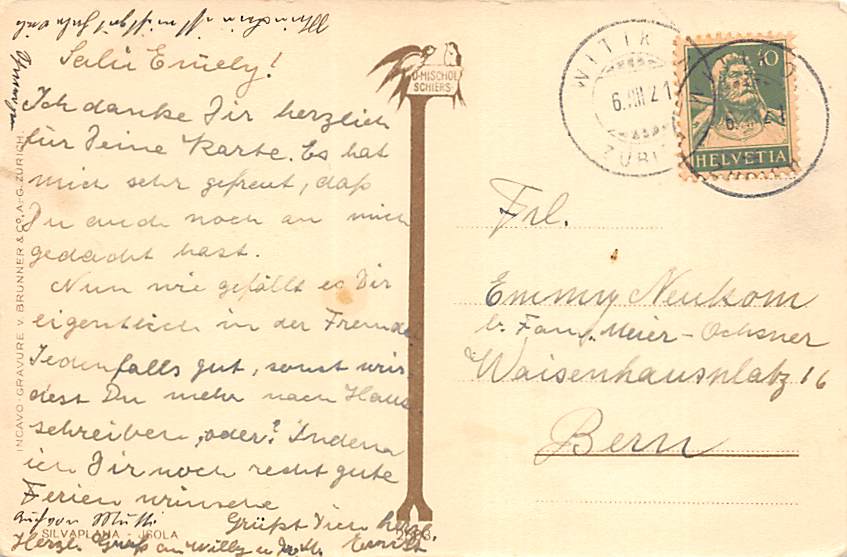 Salü Emely!
Ich danke Dir herzlich
für Deine Karte. Es hat
mich sehr gefreut, daß
Du auch noch an mich
gedacht hast.
Nun wie gefällt es Dir
eigentlich in der Fremde
Jedenfalls gut, sonst wür-
dest Du mehr nach Haus
schreiben, oder? Indem
ich Dir noch recht gute
Ferien wünsche
Grüßt Dich herzl.
Auch von Mutti
Herzl. Gruß an Willy u
SILVAPLANA - ISOLA
INCAVO-GRAVURE V. BRUNNER & CO. A.-G. ZÜRICH.
O. MISCHOL
SCHIERS
WITIK
6.VIII.21
ZÜRI
10
HELVETIA
Frl.
Emmy Neukom
b. Fam. Meier-Ochsner
Waisenhausplatz 16
Bern